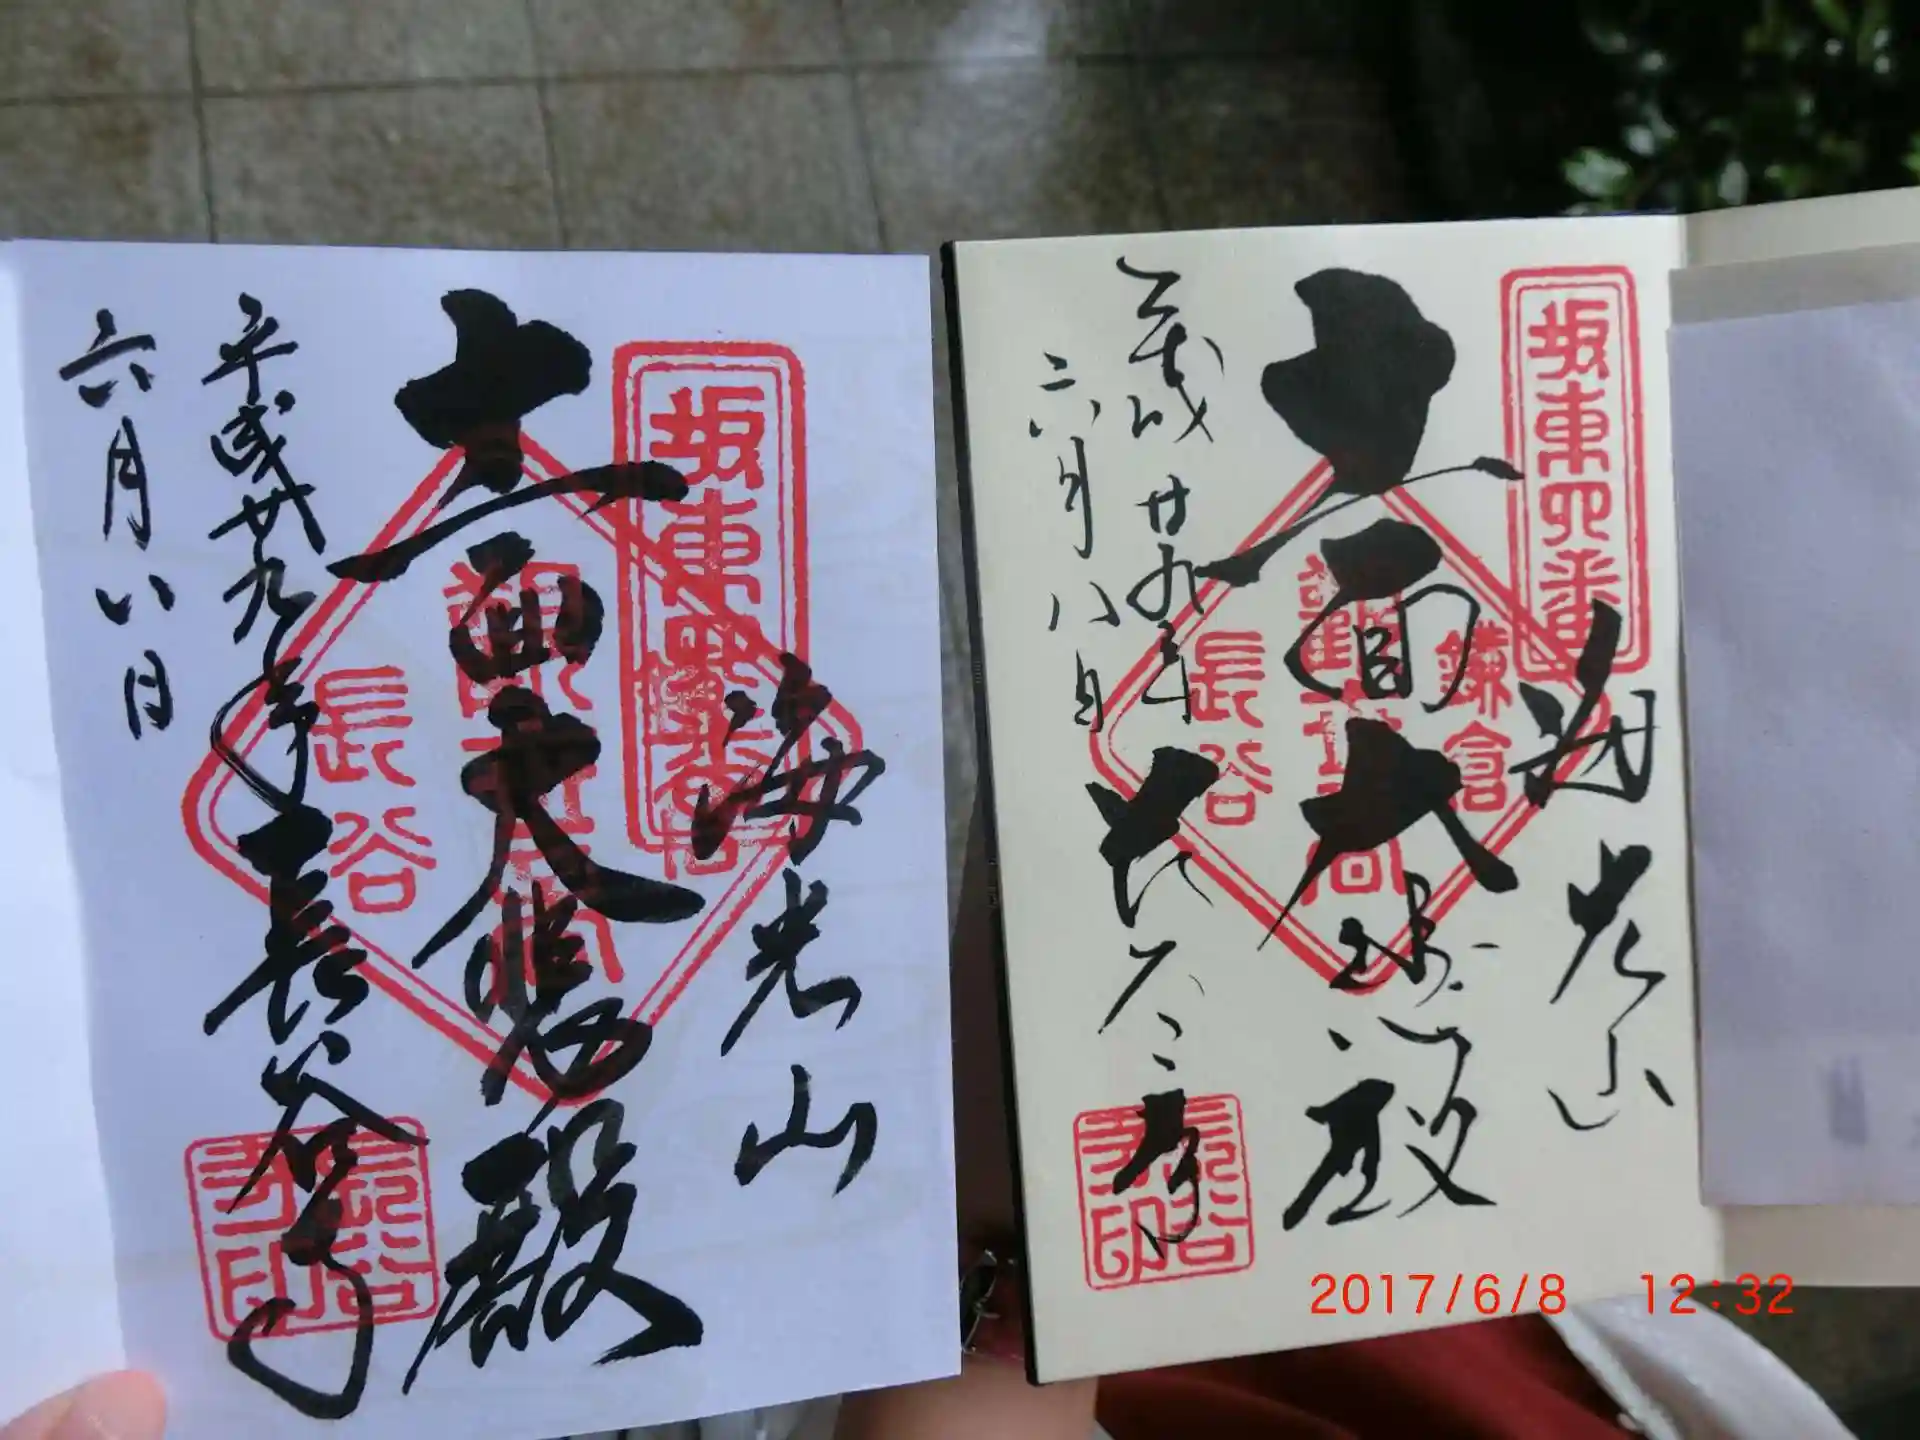 坂東四番
海光山
十一面大悲殿
長谷
長谷寺
長谷寺印
平成廿九年
六月八日
坂東四番
海光山
十一面大悲殿
鎌倉
長谷
長谷寺
長谷寺印
平成廿九年
六月八日
2017/6/8 12:32